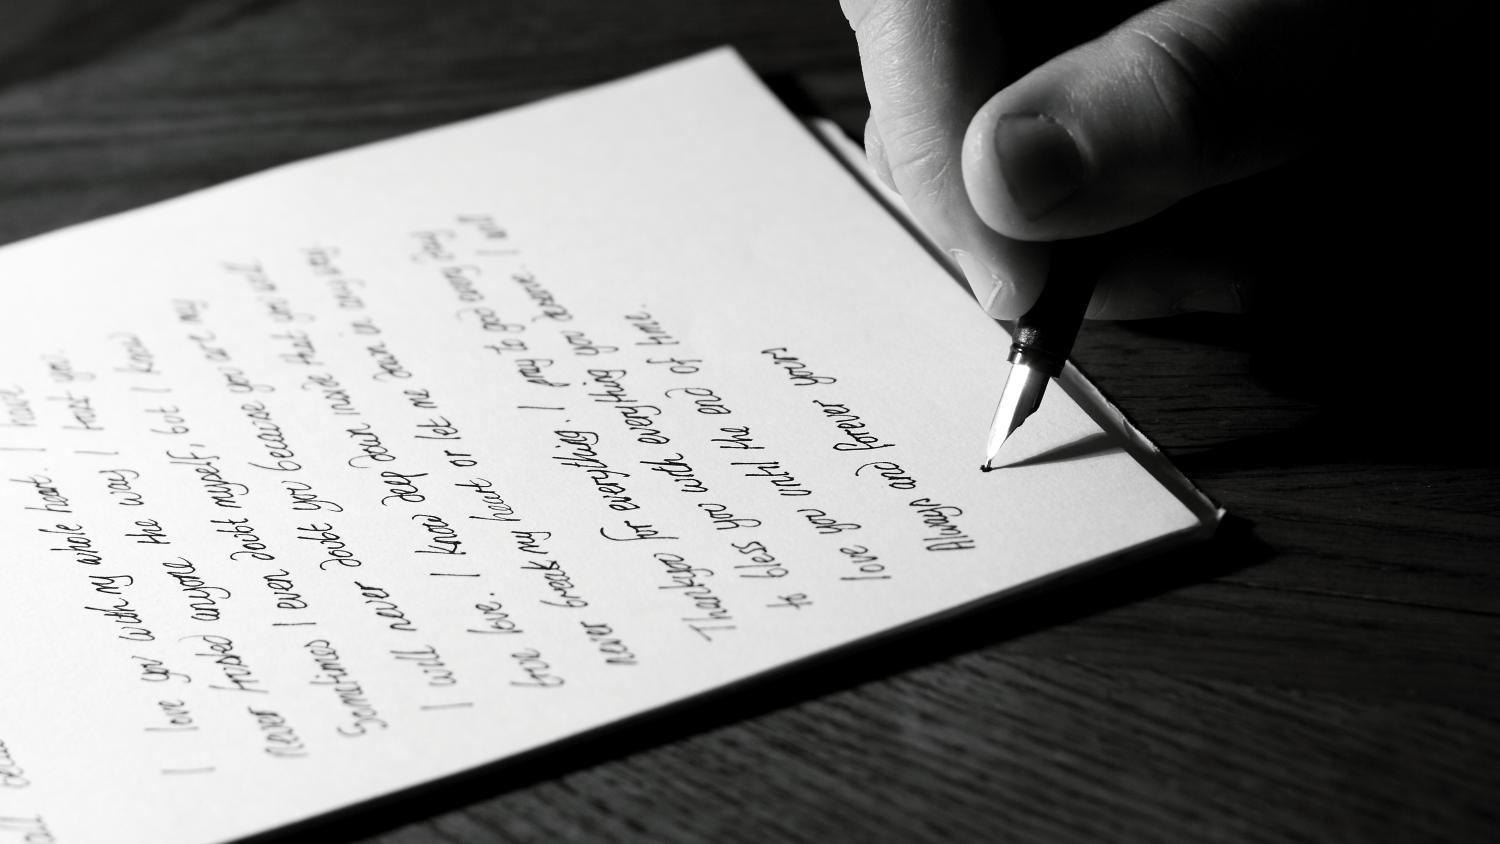 I love you with my whole heart. I have
never trusted anyone the way I trust you.
Sometimes I even doubt myself, but I know
I will never doubt you because you are my
true love. I know deep down inside that you will
never break my heart or let me down in any way.
Thankyou for everything. I pray to god every day
to bless you with everything you deserve. I will
love you until the end of time.
Always and forever yours